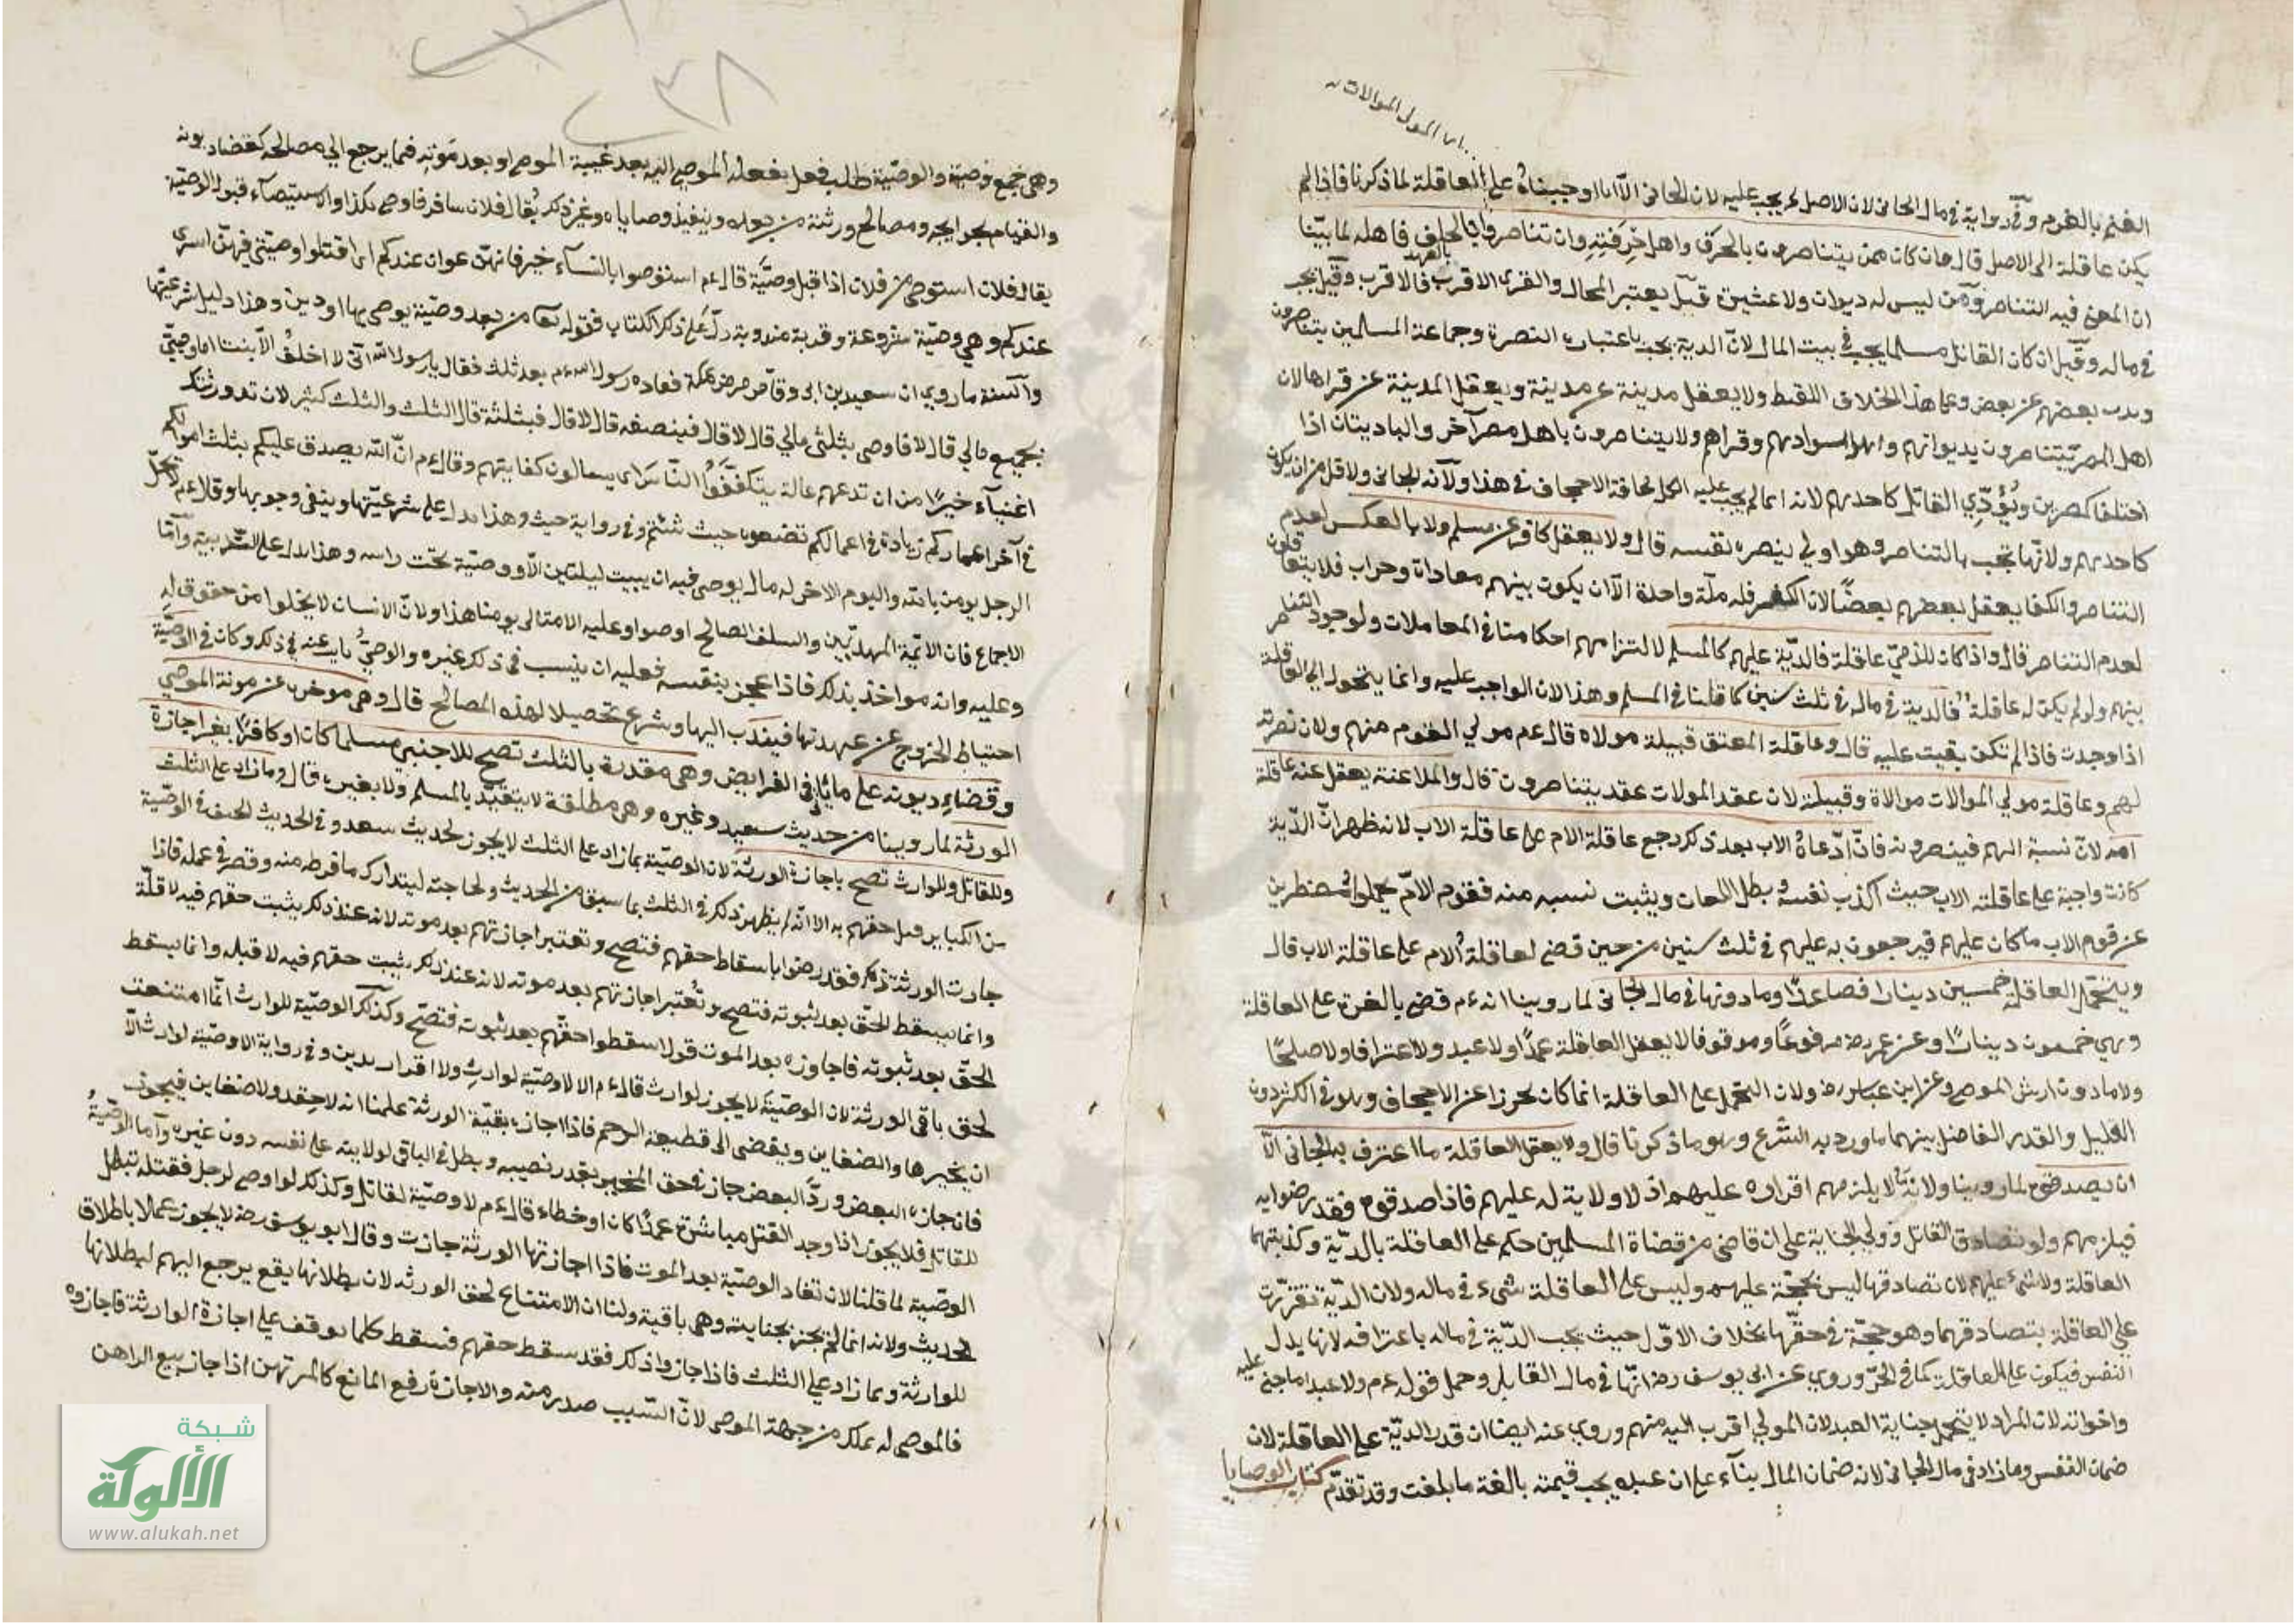 الغنم بالغرم وفي رواية في مال الجاني لان الاصل يجب عليه لان الجاني الا انا اوجبناه على العاقلة لما ذكرنا فاذا لم
يكن عاقلة الى الاصل قال فان كان ممن يتناصرون بالحرف واهل حرفته وان تناصروا بالحلف فاهله لما بيّنا
ان المعنى فيه التناصر ومن ليس له ديوان ولا عشيرة قيل يعتبر المحال والقرى الاقرب فالاقرب وقيل يجب
في ماله وقيل ان كان القاتل مسلما يجب في بيت المال لان الدية يجب باعتبار النصرة وجماعة المسلمين يتناصرون
بعضهم عن بعض وعلى هذا الخلاف اللقيط ولا يعقل مدينة عن مدينة ويعقل المدينة عن قراها لان
اهل المصر يتناصرون بديوانهم واهل سوادهم وقراهم ولا يتناصرون باهل مصر آخر والباديتان اذا
اختلفا كمصرين ويؤدي القاتل كاحدهم لانه انما لم يجب عليه الكل مخافة الاجحاف في هذا ولانه الجاني ولا اقل من ان يكون
كاحدهم ولانها تجب بالتناصر وهو اولى بنصره نفسه قال ولا يعقل كافر عن مسلم ولا بالعكس لعدم
التناصر والكفار يعقل بعضهم بعضا لان الكفر كله ملة واحدة الا ان يكون بينهم معاداة وحراب فلا يتعاقلون
لعدم التناصر قال واذا كان للذمي عاقلة فالدية عليهم كالمسلم لالتزامهم احكامنا في المعاملات ولوجود التناصر
بينهم ولو لم يكن له عاقلة فالدية في ماله في ثلث سنين كما قلنا في المسلم وهذا لان الواجب عليه وانما يتحول الى العاقلة
اذا وجدت فاذا لم تكن بقيت عليه قال وعاقلة المعتق قبيلة مولاه قال عم مولي القوم منهم ولان نصرته
لهم وعاقلة مولي الموالات موالاة وقبيلته لان عقد الموالات عقد يتناصرون قال والملاعنة يعقل عنه عاقلة
امه لان نسبة اليهم فينصرونه فان ادعاه الاب بعد ذكر رجع عاقلة الام على عاقلة الاب لانه ظهر ان الدية
كانت واجبة على عاقلة الاب حيث اكذب نفسه وبطل اللعان ويثبت نسبه منه فقوم الام تحملوا مضطرين
عن قوم الاب ما كان عليهم فيرجعون به عليهم في ثلث سنين من حين قضى لعاقلة الام على عاقلة الاب قال
ويتحمل العاقلة خمسين دينارا فصاعدا وما دونها في مال الجاني لما روينا انه عم قضى بالغرة على العاقلة
وهي خمسون دينارا وعن عمر رضه مرفوعا وموقوفا لا يعقل العاقلة عمدا ولا عبد ولا اعترافا ولا صلحا
ولا ما دون ارش الموضحة وعن ابن عباس رضه ولان التحمل على العاقلة انما كان تحرزا عن الاجحاف وهو في الكثير دون
القليل والقدر الفاصل بينهما ما ورد به الشرع وهو ما ذكرنا قال ولا يعقل العاقلة ما اعترف به الجاني الا
ان يصدقوه لما روينا ولانه لا يلزمهم اقراره عليهم اذ لا ولاية له عليهم فاذا صدقوه فقد رضوا به
فيلزمهم ولو تصادق القاتل وولي الجناية على ان قاضي من قضاة المسلمين حكم على العاقلة بالدية وكذبتهما
العاقلة ولا شيء عليهم لان تصادقهما ليس بحجة عليهم وليس على العاقلة شيء في ماله ولان الدية تقررت
على العاقلة بتصادقهما وهو حجة في حقهما بخلاف الاول حيث يجب الدية في ماله باعترافه لانها بدل
النفس فيكون على العاقلة كما في الحر وروي عن ابي يوسف رضه انها في مال القاتل وحمل قوله عم ولا عبدا ما جنى عليه
واخواته لان المراد لا يتحمل جناية العبد لان المولي اقرب اليه منهم وروي عنه ايضا ان قدر الدية على العاقلة لان
ضمان النفس وما زاد في مال الجاني لانه ضمان المال بناء على ان عبده يجب قيمته بالغة ما بلغت وقد تقدم كتاب الوصايا
٢٣٨
وهي جمع وصية والوصية طلب فعل يفعله الموصى اليه بعد غيبة الموصي او بعد موته فيما يرجع الى مصالحه كقضاء ديونه
والقيام بحوائجه ومصالح ورثته من بعده وينفيذ وصاياه وغير ذكر يقال فلان سافر فاوصى بكذا والاستيصاء قبول الوصية
يقال فلان استوصى من فلان اذا قبل وصية قال عم استوصوا بالنساء خير فانهن عوان عندكم اى اقتلوا وصيتي فيهن اسرى
عندكم وهي وصية مشروعة وقدبة مندوبة دل على ذكر الكتاب فقوله تعا من بعد وصية يوصى بها او دين وهذا دليل شرعيتها
والسنة ما روي ان سعيد بن ابى وقاص مرض بمكة فعاده رسول الله عم بعد ثلث فقال يا رسول الله انى لا اخلف الا بنت افاوصى
بجميع مالي قال لا فاوصى بثلثى مالي قال لا قال فبنصفه قال لا قال فبثلثة قال الثلث والثلث كثير لان تدع ورثتك
اغنياء خيرا من ان تدعهم عالة يتكففوا الناس اى يسالون كفايتهم وقال عم ان الله تصدق عليكم بثلث اموالكم
في آخر اعماركم زيادة في اعمالكم تضعوه حيث شئتم وفي رواية حيث وهذا يدل على شرعيتها وينفى وجوبها وقال عم لا يحل
الرجل يومن بالله واليوم الاخر له مال يوصى فيه ان يبيت ليلتين الا ووصية تحت راسه وهذا يدل على الندبية واما
الاجماع فان الائمة المهديين والسلف الصالح اوصوا وعليه الامة الى يومنا هذا ولان الانسان لا يخلوا من حقوق له
وعليه وانه مواخذ بذكر فاذا عجز بنفسه فعليه ان ينسب في ذكر غيره والوصي نايب عنه في ذكر وكان في الوصية
احتياط الخروج عن عهدتها فيندب اليها وشرع تحصيلا لهذه المصالح قال وهي موخرة عن مونة الموصي
وقضاء ديونه على ما ياتى في الفرايض وهي مقدرة بالثلث تصح للاجنبي مسلما كان او كافرا بغير اجازة
الورثة لما روينا من حديث سعيد وغيره وهي مطلقة لا يتقيد بالمسلم ولا بغيره قال وما زاد على الثلث
وللقاتل وللوارث تصح باجازة الورثة لان الوصية بما زاد على الثلث لا يجوز لحديث سعد وفي الحديث الحيف في الوصية
من الكباير قيل حقهم به الا انه لم يظهر ذكر في الثلث بما سبق من الحديث ولحاجته ليتدارك ما فرط منه وقصر في عمله فاذا
جازت الورثة ذكر فقد رضوا باسقاط حقهم فتصح وتعتبر اجازتهم بعد موته لانه عند ذكر يثبت حقهم فيه لا قبله
وانما يسقط الحق بعد ثبوته فتصح وتعتبر اجازتهم بعد موته لانه عند ذكر يثبت حقهم فيه لا قبله وانما يسقط
الحق بعد ثبوته فاجازوه بعد الموت قولا اسقطوا حقهم بعد ثبوته فتصح وكذكر الوصية للوارث انما امتنعت
لحق باقى الورثة لان الوصية لا يجوز لوارث قال عم الا لا وصية لوارث ولا اقرار بدين وفي رواية لا وصية لوارث الا
ان يخيرها والضغاين ويفضى الى قطيعة الرحم فاذا اجازه بقية الورثة علمنا انه لا حقد ولا ضغاين فيجوز
فان اجازه البعض ورد البعض جاز في حق المجيز بقدر نصيبه وبطل في الباقى لولايته على نفسه دون غيره واما الوصية
للقاتل فلا يجوز اذا وجد القتل مباشرة عمدا كان او خطاء قال عم لا وصية لقاتل وكذكر لو اوصى لرجل فقتله تبطل
الوصية لما قلنا لان نفاذ الوصية بعد الموت فاذا اجازتها الورثة جازت وقال ابو يوسف رضه لا يجوز عملا باطلاق
الحديث ولانه انما لم يجز بجنايته وهي باقية ولنا ان الامتناع لحق الورثة لان بطلانها يقع يرجع اليهم لبطلانها
للوارثة وبما زاد على الثلث فاذا اجازوا ذكر فقد سقط حقهم فسقط كلما يوقف على اجازة الوارثة فاجازوه
فالموصى له يملكه من جهة الموصى لان السبب صدر منه والاجازة رفع المانع كالمرتهن اذا جاز بيع الراهن
شبكة
الألوكة
www.alukah.net